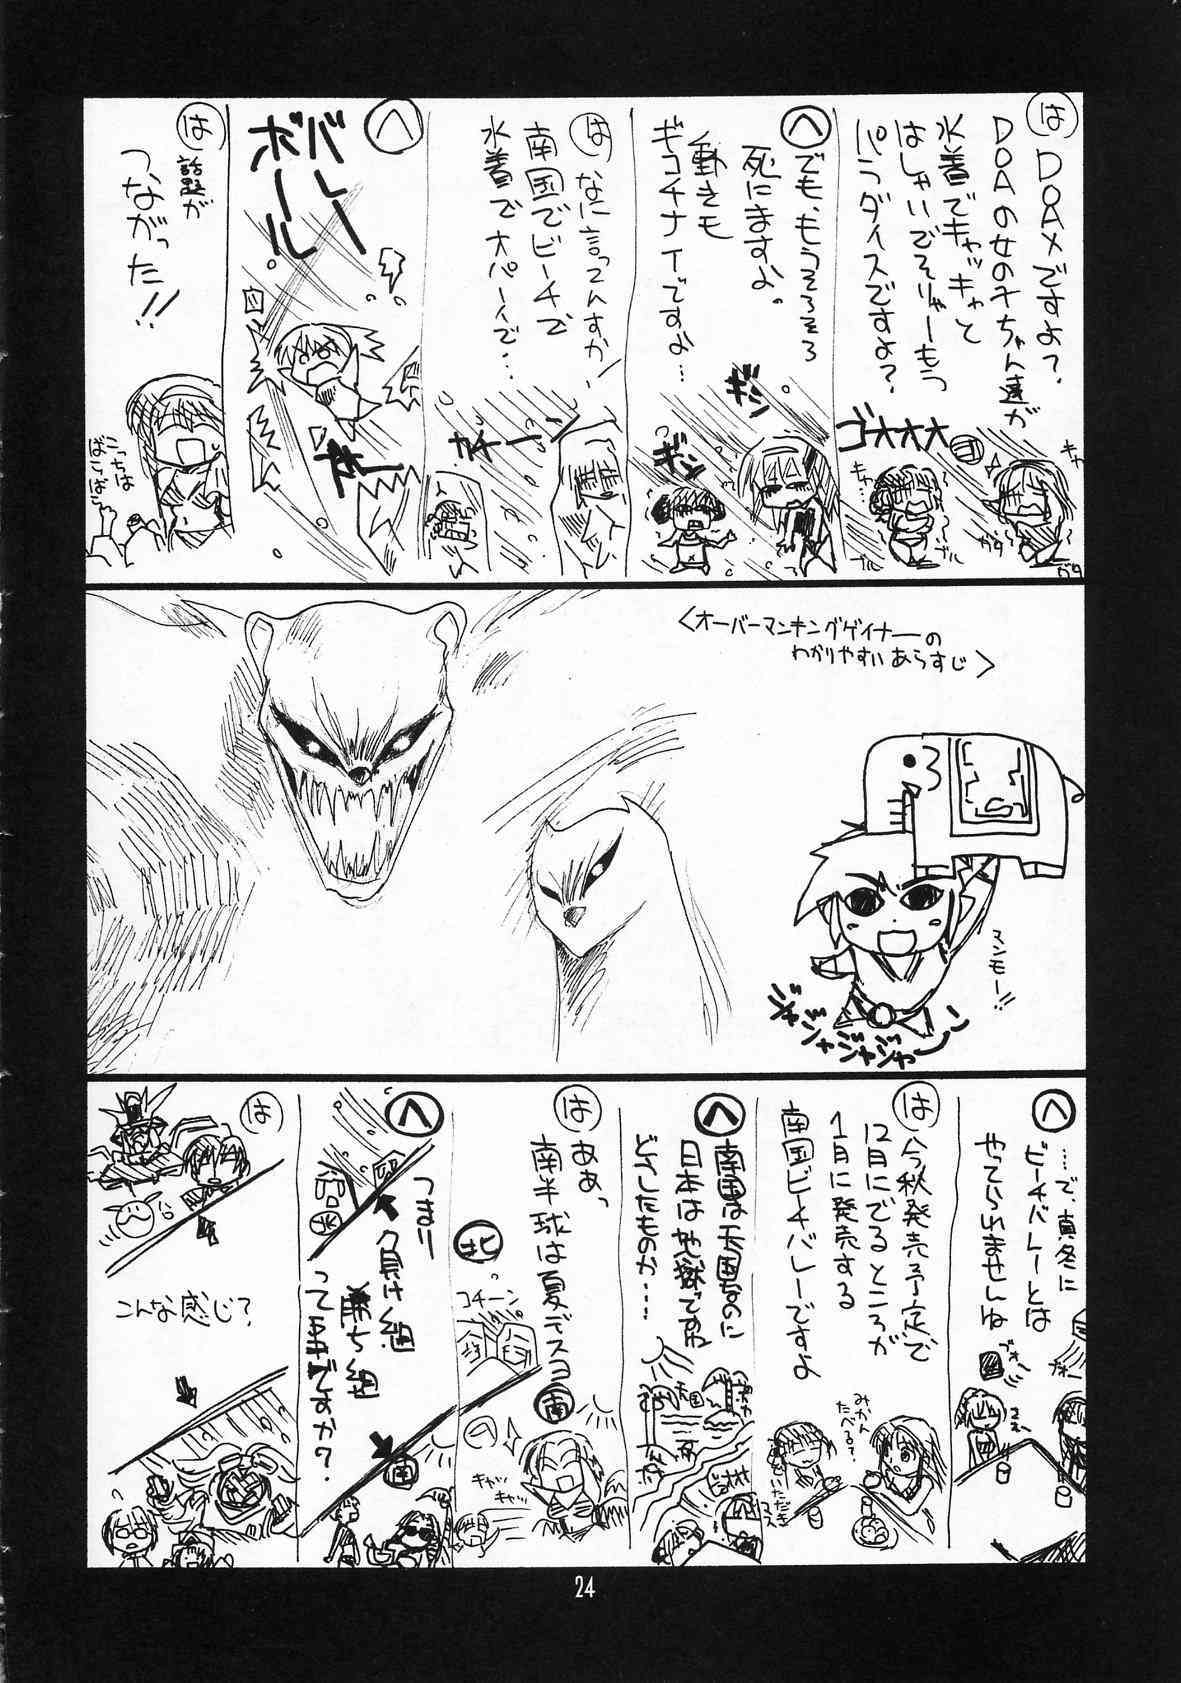 は
DOAXですよ?
DOAの女のチちゃん達が
水着でキャッキャと
はしゃいでそりゃーもう
パラダイスですよ?
ゴオオオ
キャ
キャ…
ガタ
ブル
ブル
ガタ
へ
でも、もうそろそろ
死にますよ。
動きも
ギコチナイですよ…
ギシ
ギシ
は
なに言ってんすか!
南国でビーチで
水着で大パーイで…
カチーン
へ
バレー
ボール
は
話題が
つながった!!
こっちは
ばこばこ
<オーバーマンキングゲイナーの
わかりやすいあらすじ>
マンモー!!
ジャジャジャジャーン
へ
……で、真冬に
ビーチバレーとは
やってられませんね
ブォー
ブォー
さえー
は
今秋発売予定で
12月にでるところが
1月に発売する
南国ビーチバレーですよ
みかん
たべる?
いただき
マス
へ
南国は天国なのに
日本は地獄ですね
どうしたものか……
天国
は
ああ、
南半球は夏デスヨ
北
コチーン
南
キャッ
キャッ
へ
つまり
負け組
勝ち組
ってコトですか?
南
は
こんな感じ?
24